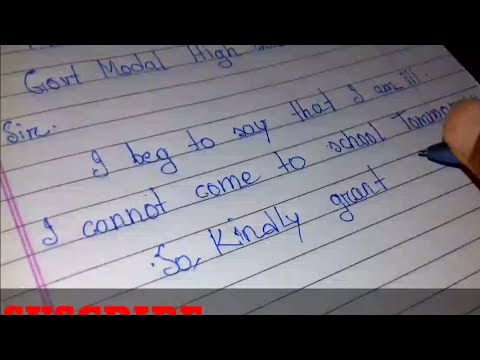 Govt Modal High
Sir.
I beg to say that I am ill.
I cannot come to school
So, Kindly grant
SUBSCRIBE